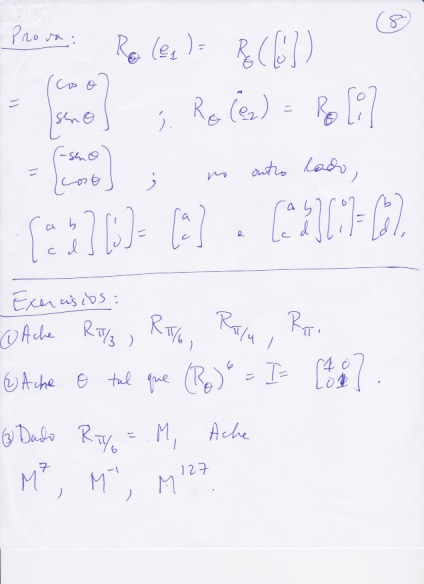 8
Prova: R_θ (e_1) = R_θ ([1 0])
= (cos θ sen θ) ; R_θ (e_2) = R_θ [0 1]
= [-senθ cosθ] ; no outro lado,
[a b c d] [1 0] = [a c] e [a b c d] [0 1] = [b d].
Exercísios:
① Ache R_π/3 , R_π/6 , R_π/4 , R_π.
② Ache θ tal que (R_θ)^6 = I = [1 0 0 1].
③ Dado R_π/6 = M, Ache
M^7 , M^-1 , M^127.